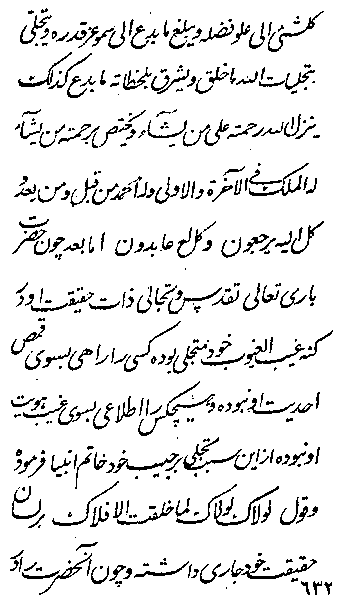 کلشئ الی علو فضله و یبلغ ما بدع الی سمو عز قدره و یتجلی
بتجلیات الله ما خلق و یشرق بلحظاته ما بدع کذلک
ینزل الله رحمته علی من یشآء و یختص برحمته من یشآء
له الملک فی الآخرة والاولی وله الحمد من قبل و من بعد و
کل الیه یرجعون و کل له عابدون اما بعد چون حضرت
باری تعالی تقدس و تجالی ذات حقیقت او در
کنه غیب الغیوب خود متجلی بوده کسی را راهی بسوی محض
احدیت او نبوده و هیچکس را اطلاعی بسوی غیب هویت
او نبوده از این سبب تجلی بر حبیب خود خاتم انبیا فرموده
و قول لولاک لولاک لما خلقت الافلاک بر لسان
حقیقت خود جاری داشته و چون آنحضرت را در
۶۳۲